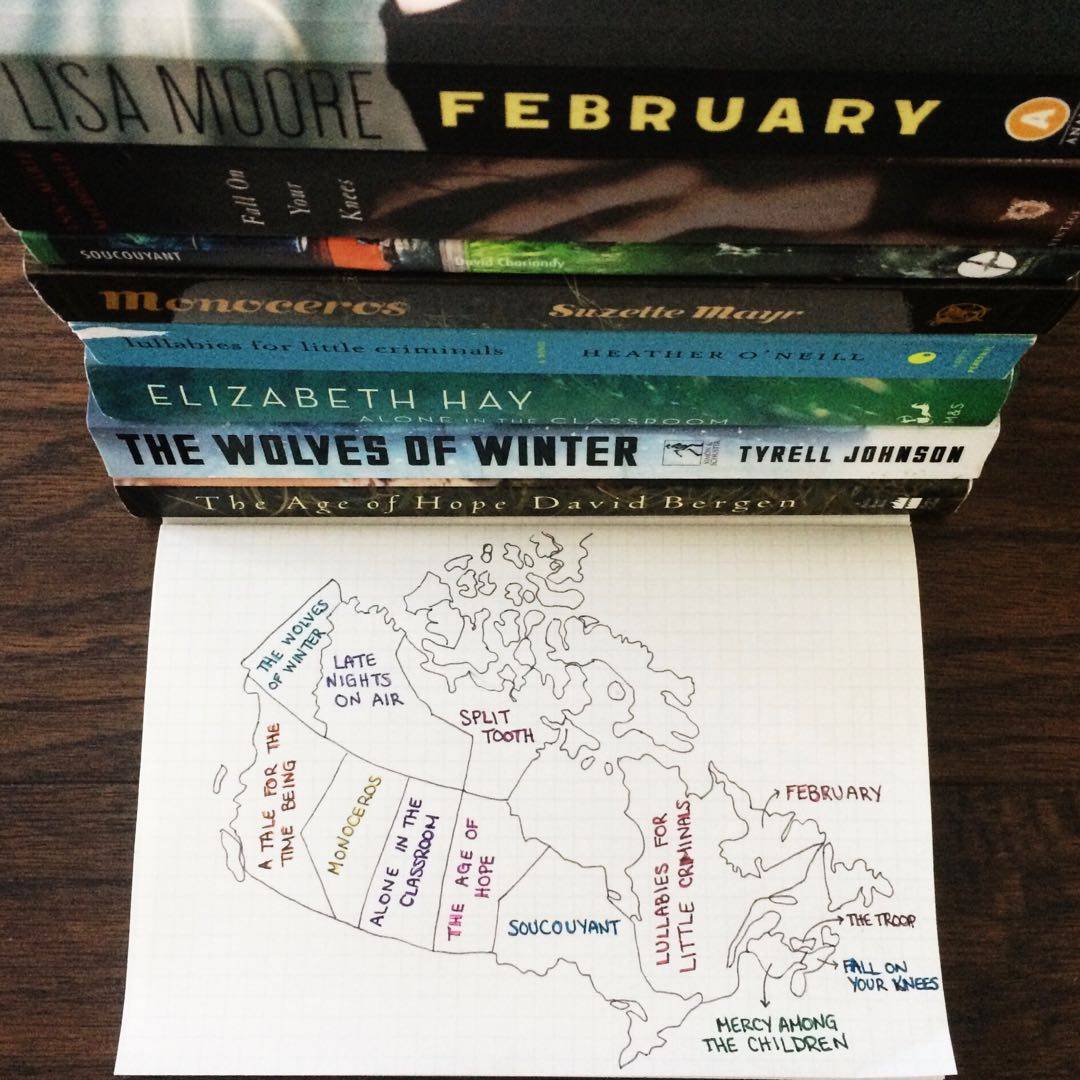 LISA MOORE FEBRUARY A
Fall On
Your
Knees
SOUCOUYANT David Chariandy
Monoceros Suzette Mayr
lullabies for little criminals HEATHER O'NEILL
ELIZABETH HAY
ALONE IN THE CLASSROOM M&S
THE WOLVES OF WINTER TYRELL JOHNSON
The Age of Hope David Bergen
THE WOLVES
OF WINTER
LATE
NIGHTS
ON AIR
SPLIT
TOOTH
A TALE FOR THE
TIME BEING
MONOCEROS
ALONE IN THE
CLASSROOM
THE AGE OF
HOPE
SOUCOUYANT
LULLABIES FOR
LITTLE CRIMINALS
FEBRUARY
THE TROOP
FALL ON
YOUR KNEES
MERCY AMONG
THE CHILDREN